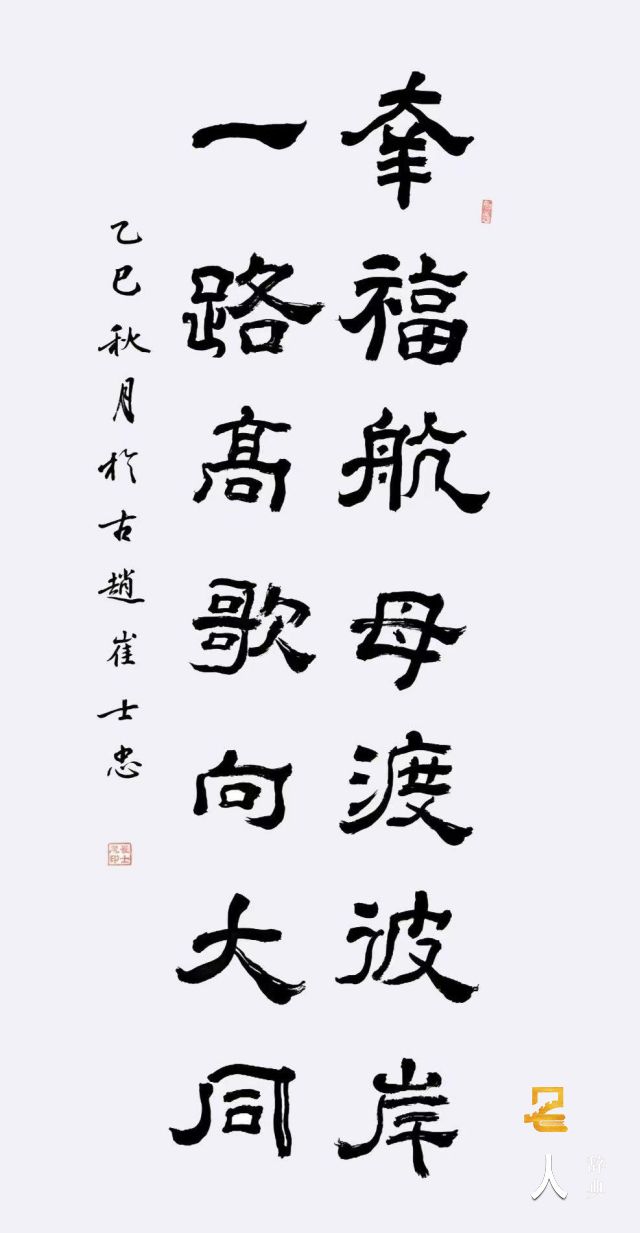 幸福航母渡彼岸
一路高歌向大同
乙巳秋月於古趙崔士忠
崔士忠印
名人
辞典